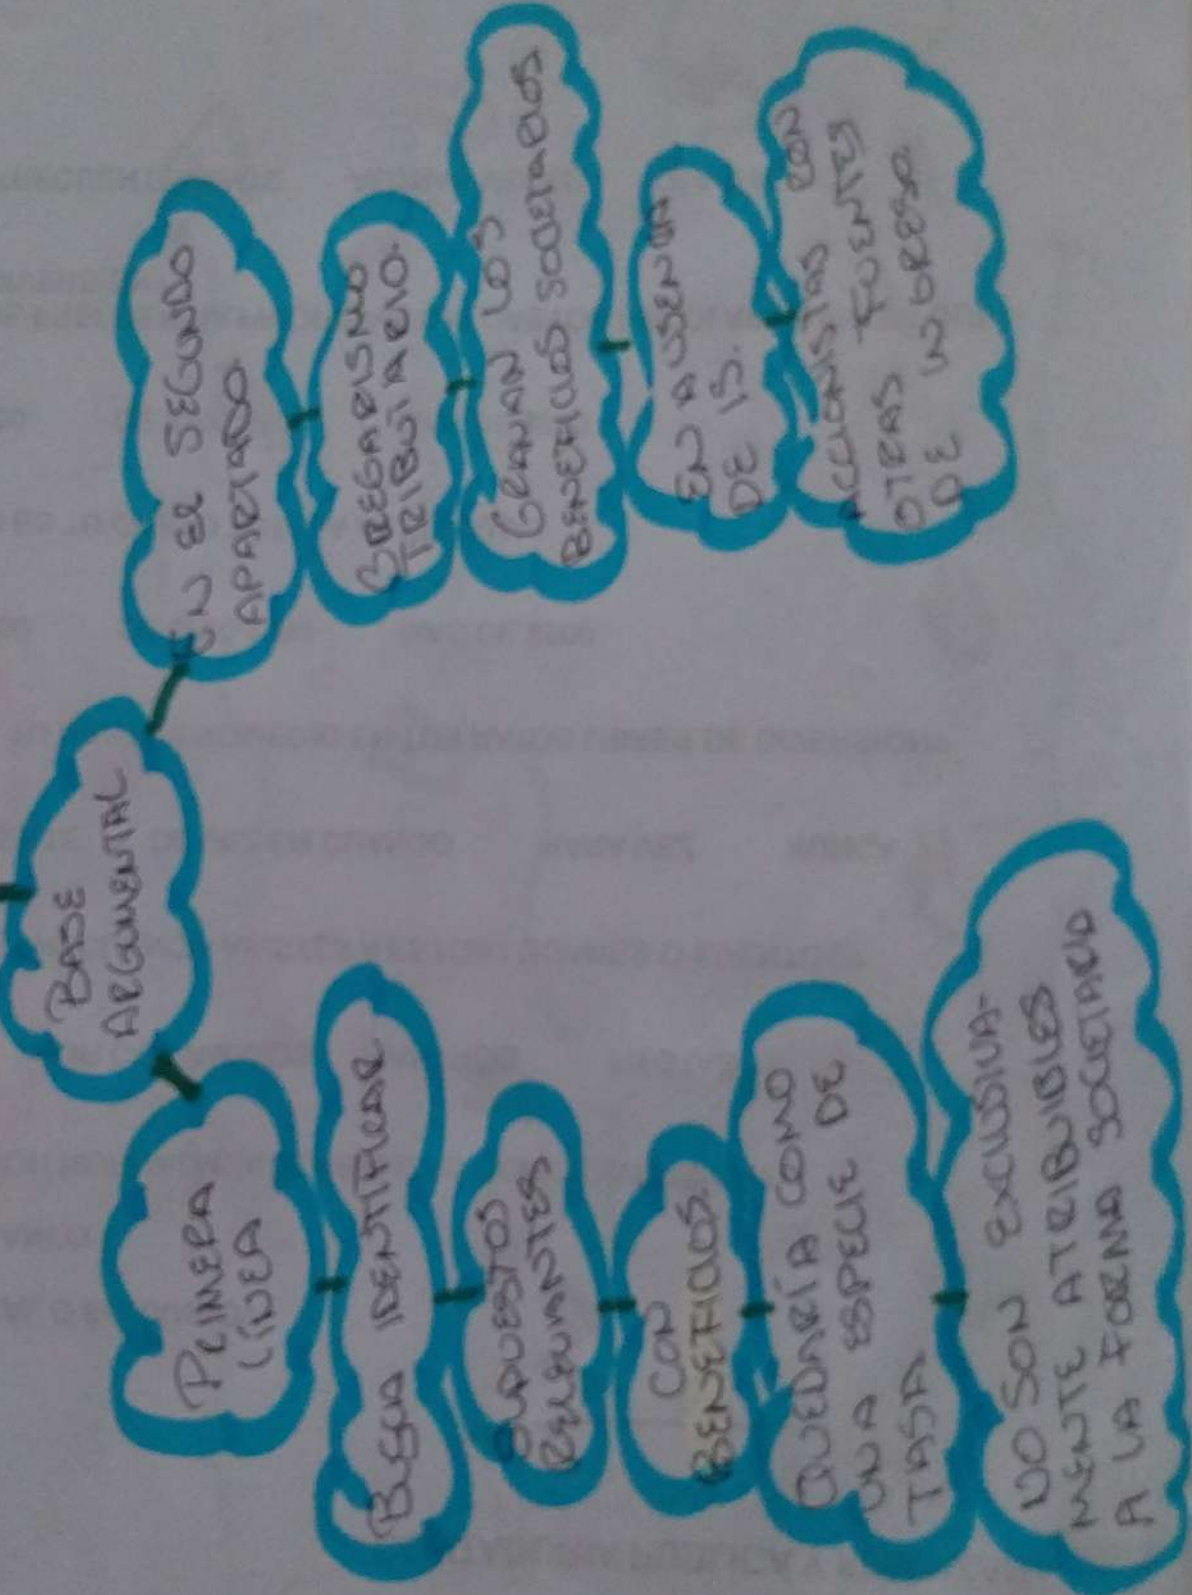 BASE
ARGUMENTAL
PRIMERA
LÍNEA
BUSCA IDENTIFICAR
SUPUESTOS
RELEVANTES
CON
BENEFICIOS
QUEDARÍA COMO
UNA ESPECIE DE
TASA
NO SON EXCLUSIVA-
MENTE ATRIBUIBLES
A LA FORMA SOCIETARIA
EN EL SEGUNDO
APARTADO
GREGARISMO
TRIBUTARIO.
GRAVAN LOS
BENEFICIOS SOCIETARIOS
EN AUSENCIA
DE IS.
ACCIONISTAS CON
OTRAS FUENTES
DE INGRESO.